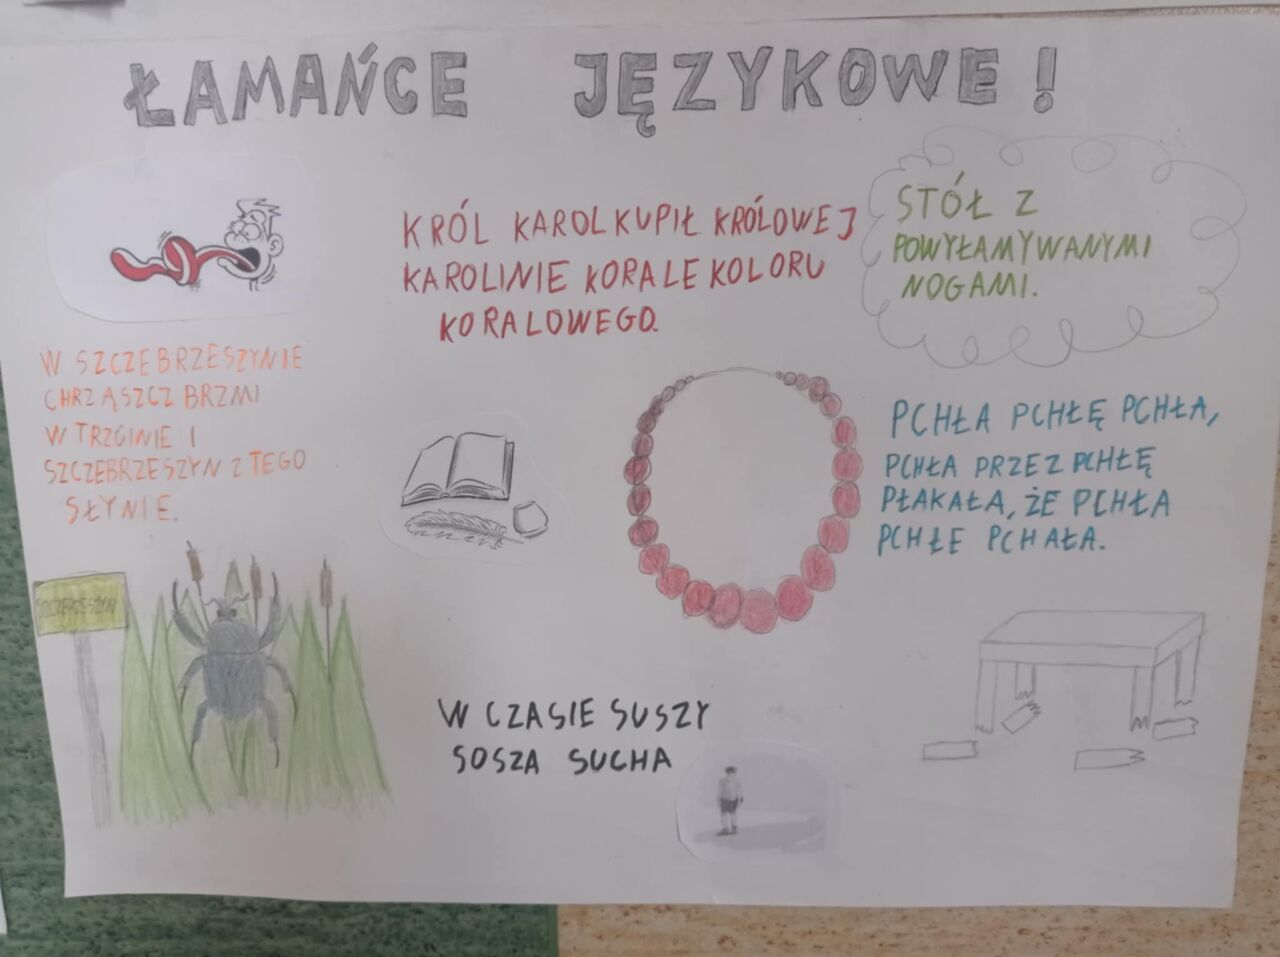 ŁAMAŃCE JĘZYKOWE!
KRÓL KAROL KUPIŁ KRÓLOWEJ
KAROLINIE KORALE KOLORU
KORALOWEGO.
STÓŁ Z
POWYŁAMYWANYMI
NOGAMI.
W SZCZEBRZESZYNIE
CHRZĄSZCZ BRZMI
W TRZCINIE I
SZCZEBRZESZYN Z TEGO
SŁYNIE.
PCHŁA PCHŁĘ PCHŁA,
PCHŁA PRZEZ PCHŁĘ
PŁAKAŁA, ŻE PCHŁA
PCHŁĘ PCHAŁA.
SZCZEBRZESZYN
W CZASIE SUSZY
SOSZA SUCHA